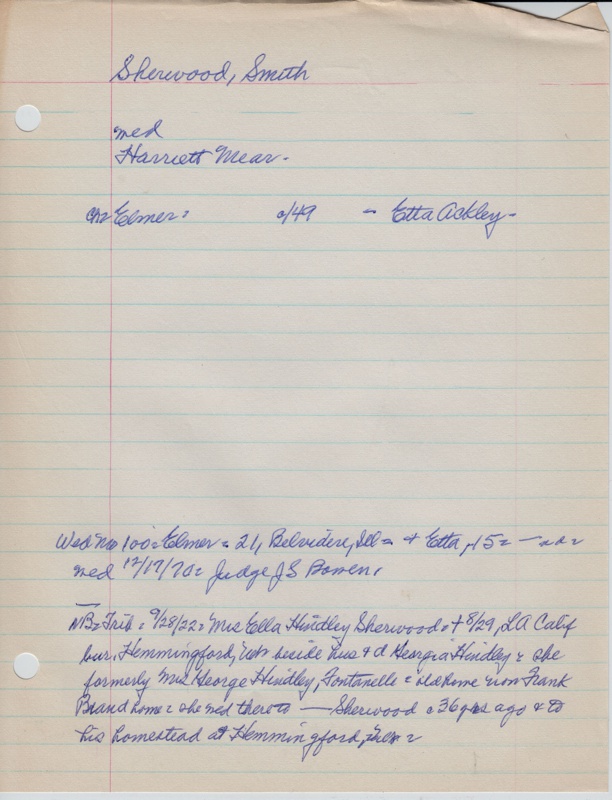 Sherwood, Smith
med
Harriett Mear-
ch= Elmer= c/49 = Etta Ackley-
Wed no 100= Elmer= 21, Belvidere, Ill= + Etta, 15=
med 12/17/70= Judge J S Bowen,
NB= Trib= 9/28/22= Mrs Ella Hindley Sherwood= + 8/29, LA Calif
bur, Hemmingford, Neb beside hus & d Georgia Hindley= she
formerly Mrs George Hindley, Fontanelle= old home now Frank
Brand home= she med there to — Sherwood c 36 yrs ago & to
his homestead at Hemmingford, then=